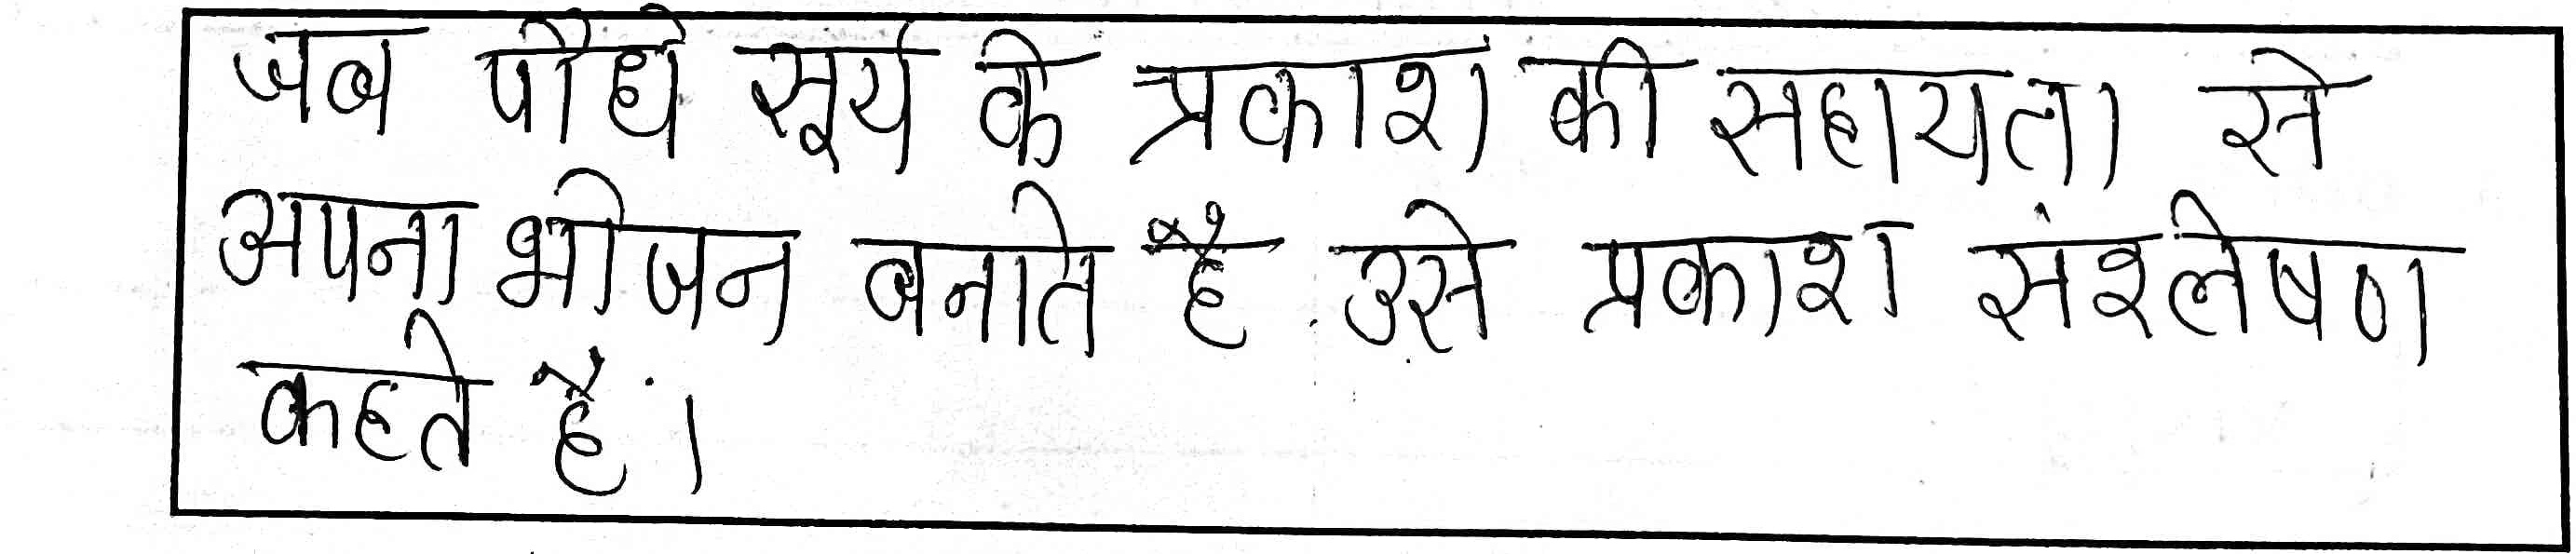 जब पौधे सूर्य के प्रकाश की सहायता से
अपना भोजन बनाते हैं उसे प्रकाश संश्लेषण
कहते हैं।